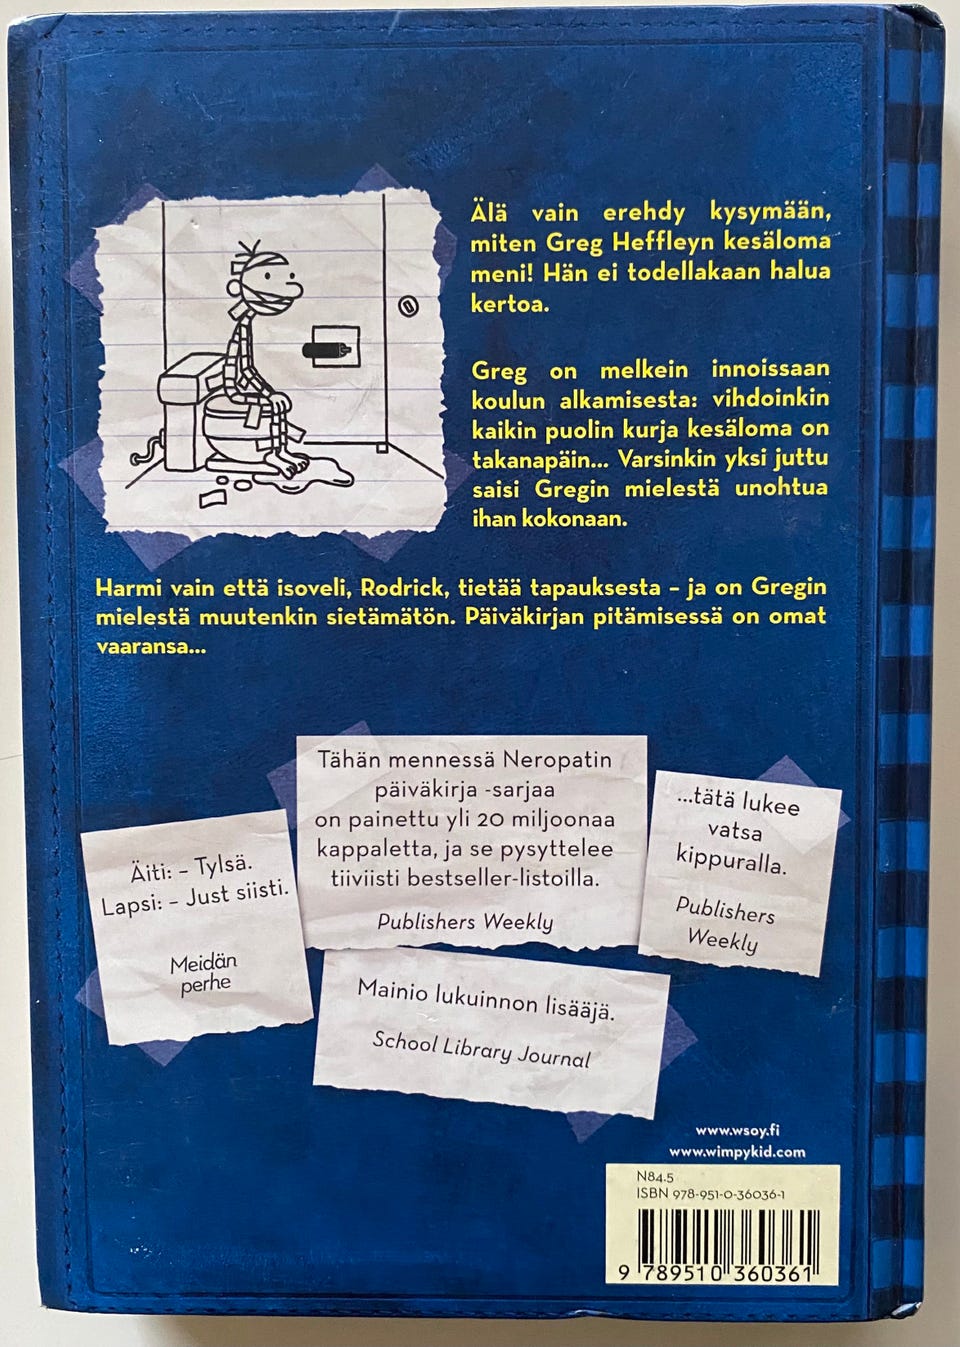 Älä vain erehdy kysymään,
miten Greg Heffleyn kesäloma
meni! Hän ei todellakaan halua
kertoa.
Greg on melkein innoissaan
koulun alkamisesta: vihdoinkin
kaikin puolin kurja kesäloma on
takanapäin... Varsinkin yksi juttu
saisi Gregin mielestä unohtua
ihan kokonaan.
Harmi vain että isoveli, Rodrick, tietää tapauksesta – ja on Gregin
mielestä muutenkin sietämätön. Päiväkirjan pitämisessä on omat
vaaransa...
Äiti: – Tylsä.
Lapsi: – Just siisti.
Meidän
perhe
Tähän mennessä Neropatin
päiväkirja -sarjaa
on painettu yli 20 miljoonaa
kappaletta, ja se pysyttelee
tiiviisti bestseller-listoilla.
Publishers Weekly
...tätä lukee
vatsa
kippuralla.
Publishers
Weekly
Mainio lukuinnon lisääjä.
School Library Journal
www.wsoy.fi
www.wimpykid.com
N84.5
ISBN 978-951-0-36036-1
9 789510 360361